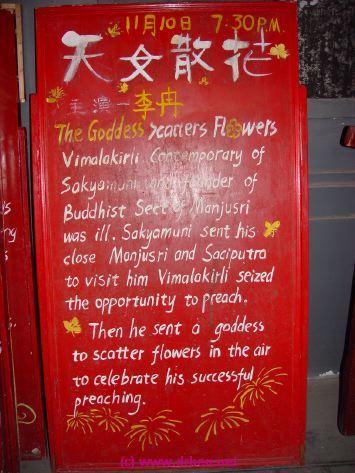 11月10日 7:30P.M.
天女散花
主演－李冉
The Goddess Scatters Flowers
Vimalakirli Contemporary of
Sakyamuni and founder of
Buddhist Sect of Manjusri
was ill. Sakyamuni sent his
close Manjusri and Saciputra
to visit him Vimalakirli seized
the opportunity to preach.
Then he sent a goddess
to scatter flowers in the air
to celebrate his successful
preaching.